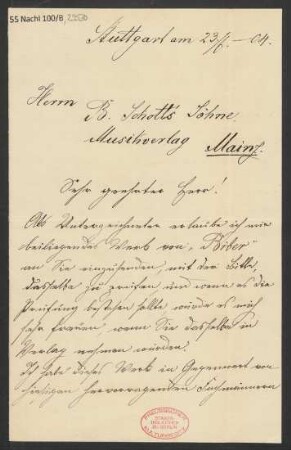 55 Nachl 100/B
Stuttgart am 23/7. – 04.
Herrn
B. Schott's Söhne,
Musikverlag Mainz.
Sehr geehrter Herr!
Als Unterzeichneter erlaube ich mir
beiliegendes Werk von „Biber"
an Sie einzusenden, mit der Bitte,
dasselbe zu prüfen, und wenn es die
Prüfung bestehen sollte würde es mich
sehr freuen, wenn Sie dasselbe in
Verlag nehmen würden.
Ich habe dieses Werk in Gegenwart von
hiesigen hervorragenden Fachmännern